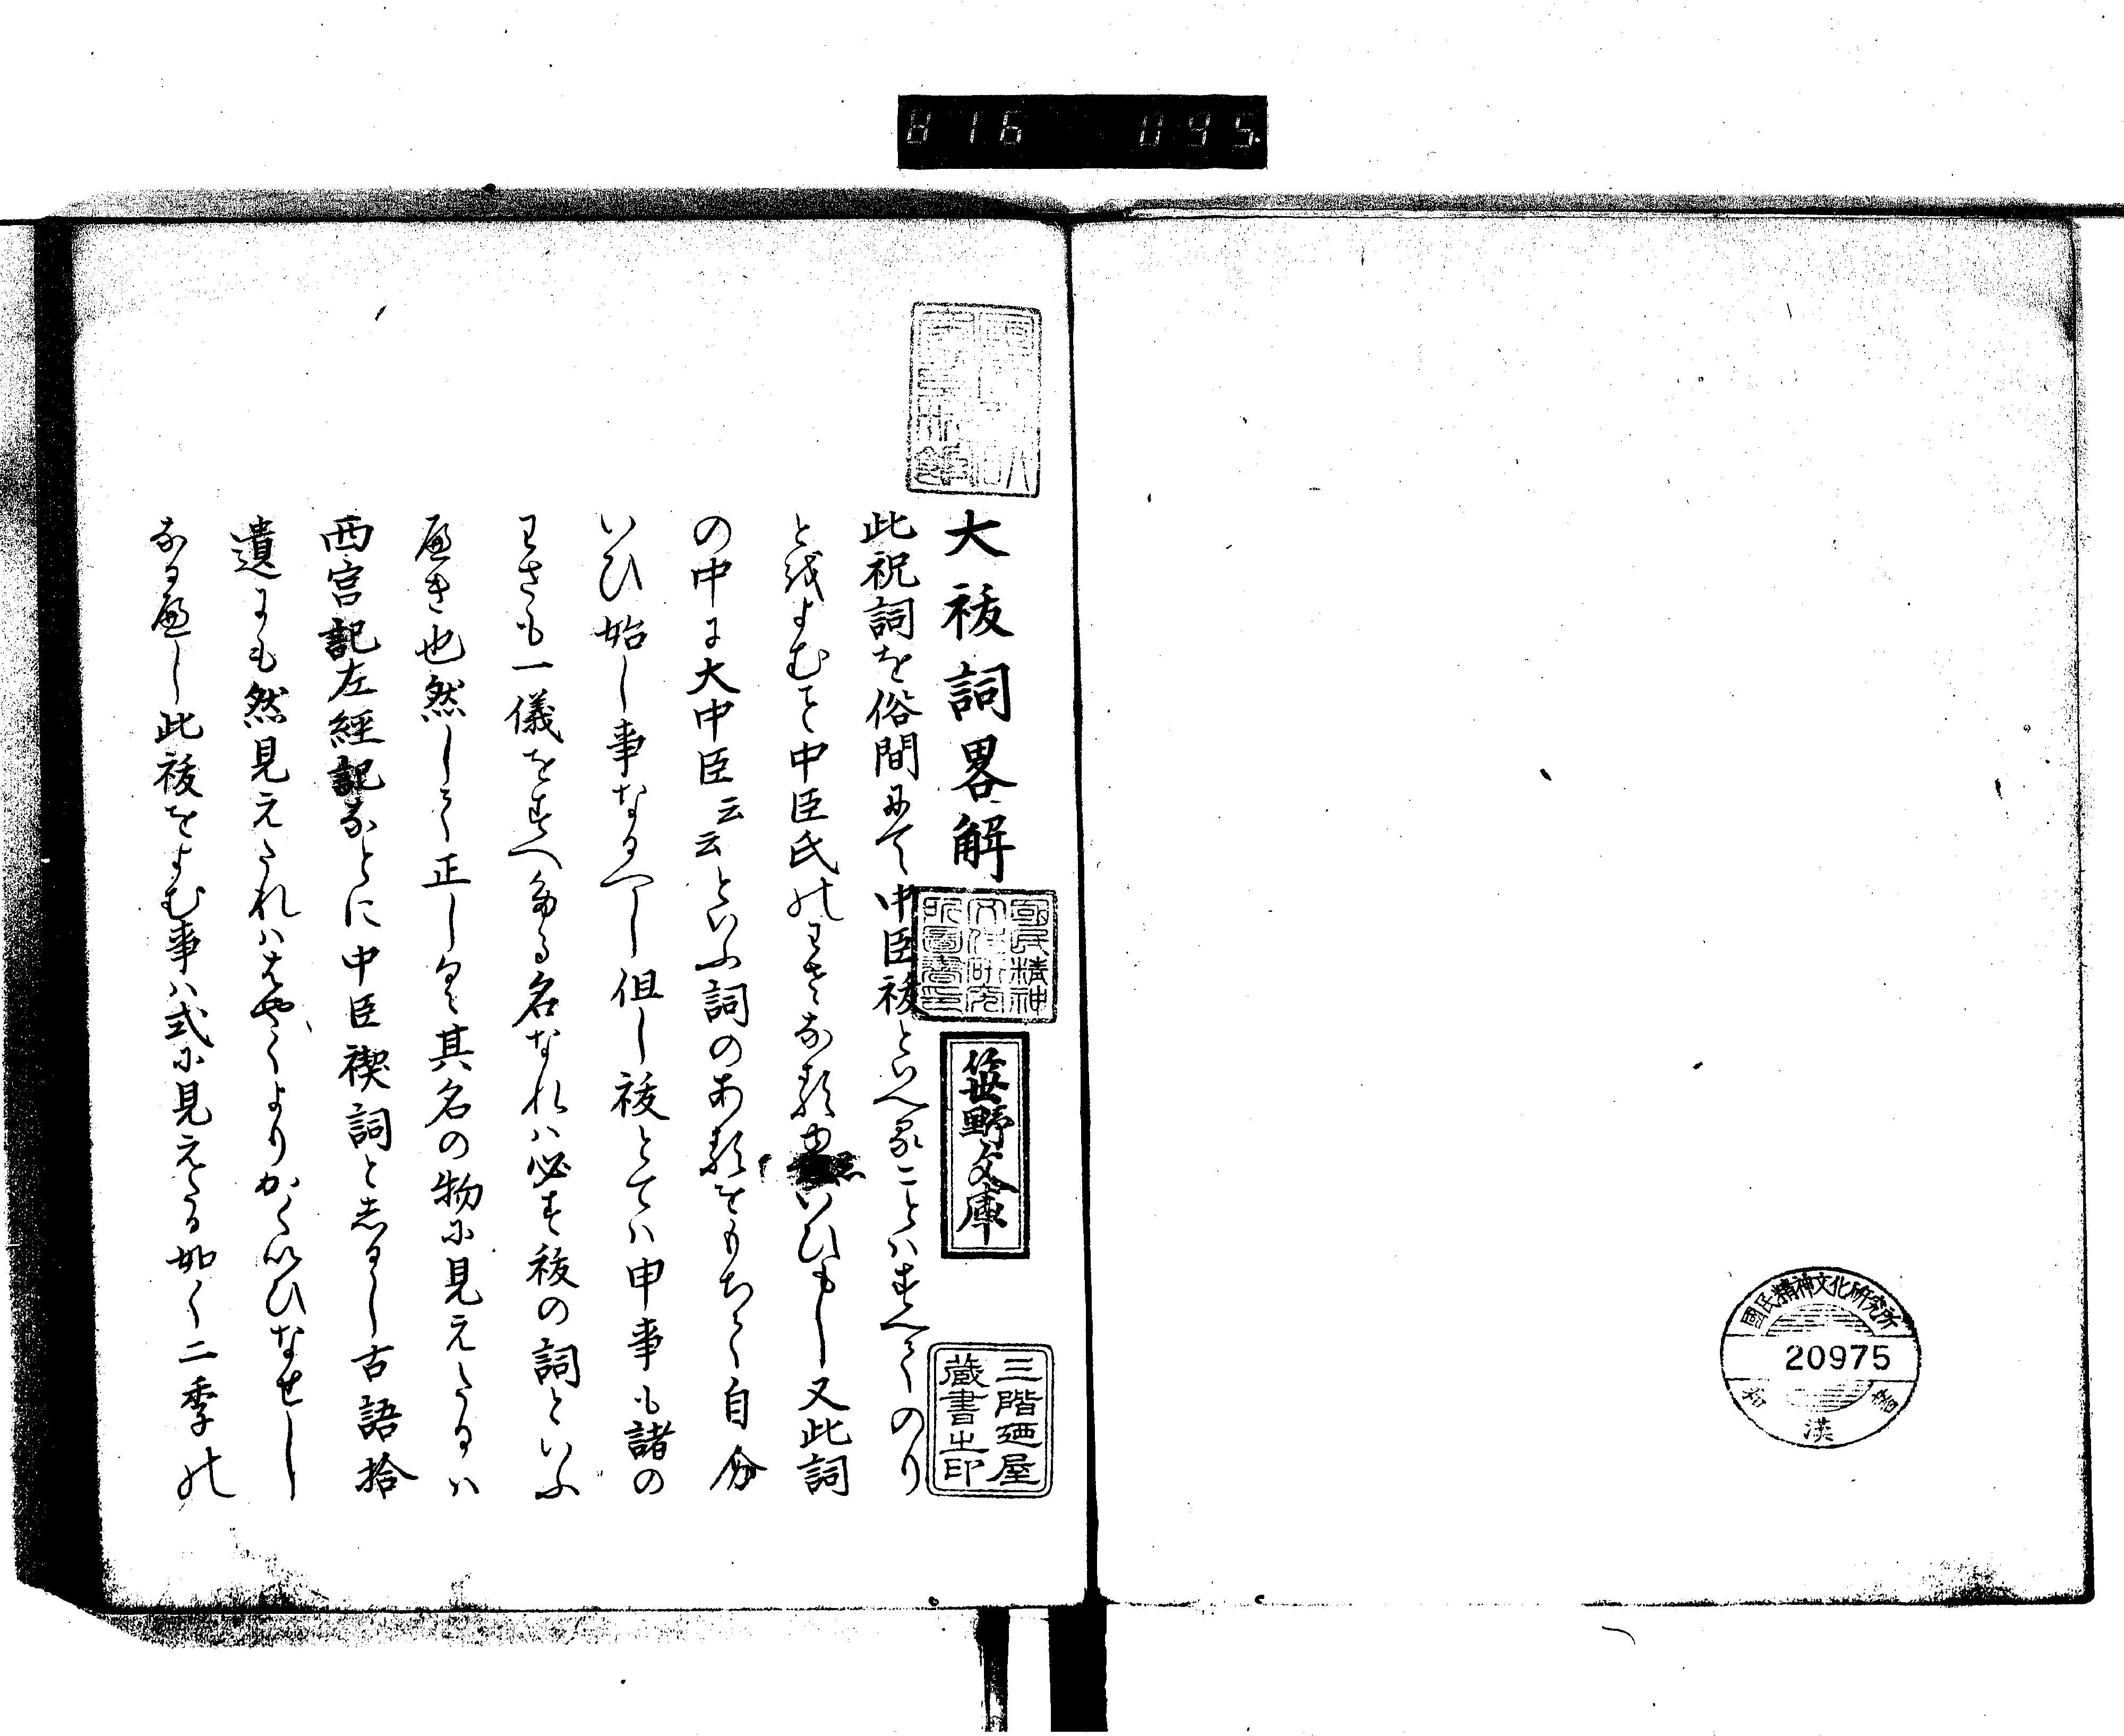 816 095
大祓詞畧解
此祝詞を俗間にて中臣祓といへることはすへてのり
とをよむこと中臣氏のわさなる いひもし又此詞
の中に大中臣云云といふ詞のあるをもちて自分
いひ始し事なるへし但し祓とては申事も諸の
わさも一儀をすへたる名なれは必す祓の詞といふ
へき也然して正しく其名の物に見えたるは
西宮記左経記なとに中臣禊詞としるし古語拾
遺にも然見えたれははやくよりかくいひなせし
なるへし此祓をよむ事は式に見えたる如く二季の
國民精神文化研究所圖書印
笹野文庫
三階廼屋
蔵書之印
國民精神文化研究所
20975
和漢書